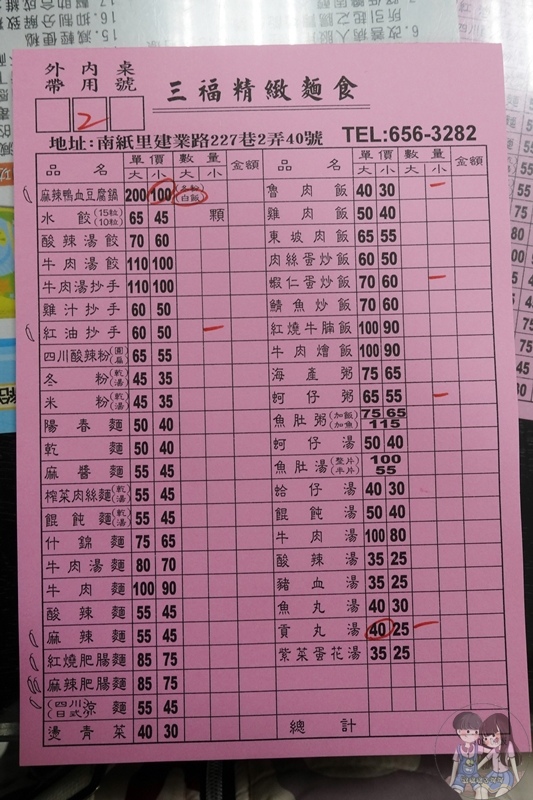 外帶 內用 桌號
2
三福精緻麵食
地址:南紙里建業路227巷2弄40號 TEL:656-3282
品名 單價 大 小 數量 大 小 金額
麻辣鴨血豆腐鍋 200 100 白飯
水餃(15粒)(10粒) 65 45 顆
酸辣湯餃 70 60
牛肉湯餃 110 100
牛肉湯抄手 110 100
雞汁抄手 60 50
紅油抄手 60 50 一
四川酸辣粉 65 55
冬粉(乾)(湯) 45 35
米粉(乾)(湯) 45 35
陽春麵 50 40
乾麵 50 40
麻醬麵 55 45
榨菜肉絲麵(乾)(湯) 55 45
餛飩麵(乾)(湯) 55 45
什錦麵 75 65
牛肉湯麵 80 70
牛肉麵 100 90
酸辣麵 55 45
麻辣麵 55 45
紅燒肥腸麵 85 75
麻辣肥腸麵 85 75
(四川)(日式)涼麵 55 45
燙青菜 40 30
品名 單價 大 小 數量 大 小 金額
魯肉飯 40 30 一
雞肉飯 50 40
東坡肉飯 65 55
肉絲蛋炒飯 60 50
蝦仁蛋炒飯 70 60 一
鯖魚炒飯 70 60
紅燒牛腩飯 100 90
牛肉燴飯 100 90
海產粥 75 65
蚵仔粥 65 55 一
魚肚粥(加飯)(加魚) 75 65 115
蚵仔湯 50 40
魚肚湯(整片)(半片) 100 55
蛤仔湯 40 30
餛飩湯 50 40
牛肉湯 100 80
酸辣湯 35 25
豬血湯 35 25
魚丸湯 40 30
貢丸湯 40 25 一
紫菜蛋花湯 35 25
總計